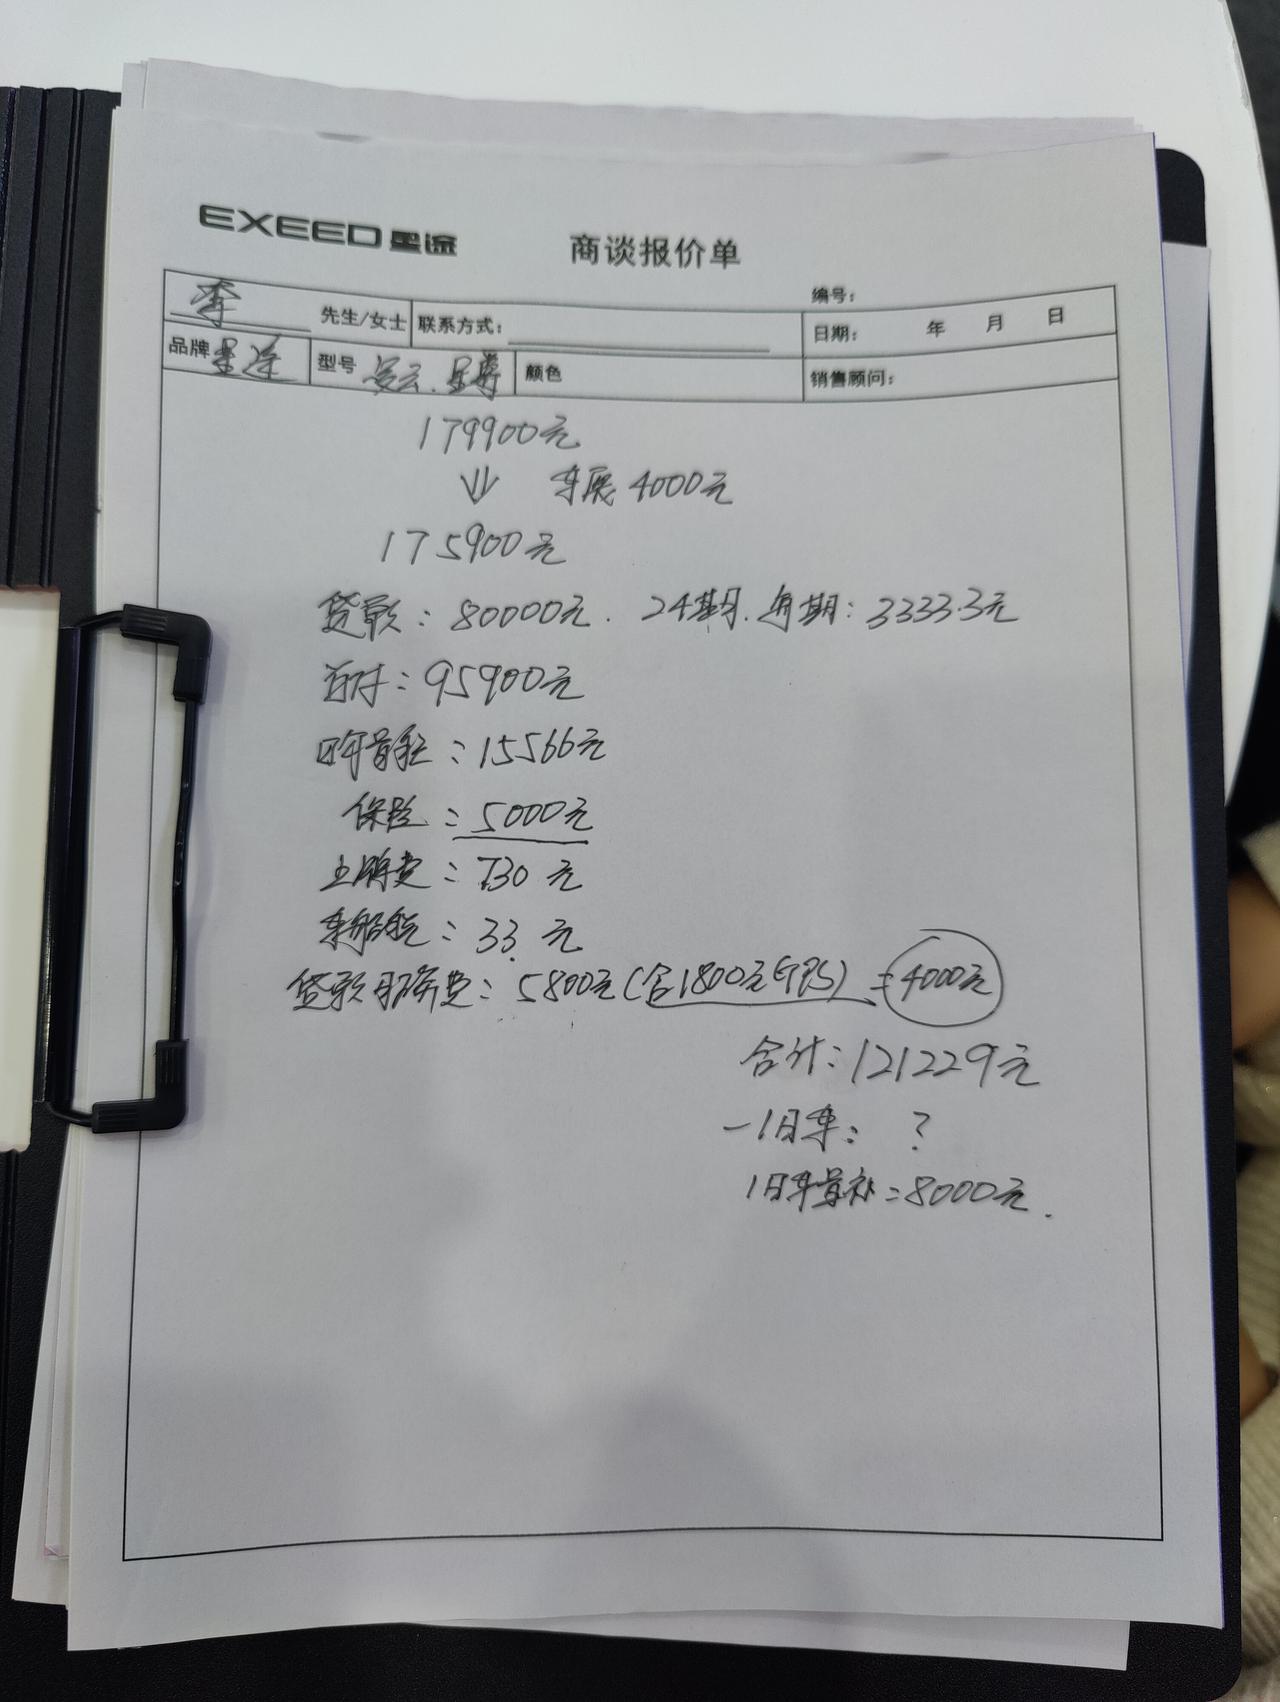 EXEED 星途 商谈报价单
编号：
李 先生/女士 联系方式： 日期： 年 月 日
品牌 星途 型号 凌云.星尊 颜色 销售顾问：
179900元
⇓ 车展 4000元
175900元
贷款：80000元. 24期. 每期：3333.3元
首付：95900元
购置税：15566元
保险：5000元
上牌费：730元
车船税：33元
贷款服务费：5800元(含1800元GPS) = 4000元
合计：121229元
－旧车：？
旧车置补=8000元.